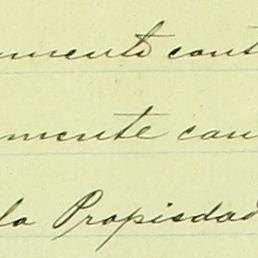 umento cont
mente can
la Propiedad